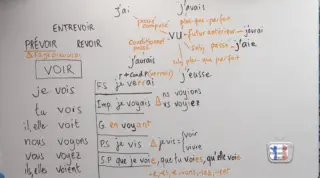 j'ai
j'avais
ENTREVOIR
passé composé
plus-que-parfait
PRÉVOIR REVOIR
VU
futur antérieur
j'aurai
conditionnel passé
subj. passé
j'aie
j'aurais
subj. plus-que-parfait
j'eusse
VOIR
F.S. je verrai
je vois
Imp. je voyais
ns voyions
vs voyiez
tu vois
il, elle voit
G. en voyant
nous voyons
P.S. je vis
je vis =
voir
vivre
vous voyez
S.P. que je voie, que tu voies, qu'elle voie
ils, elles voient
-e, -es, -e, -ions, -iez, -ent